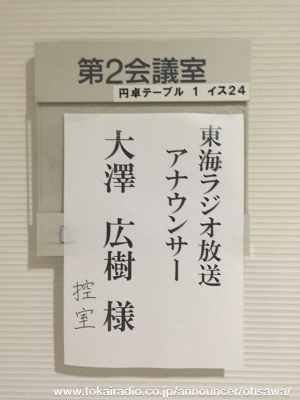 第2会議室
円卓テーブル 1 イス24
東海ラジオ放送
アナウンサー
大澤 広樹 様
控室
www.tokairadio.co.jp/announcer/ohsawa/